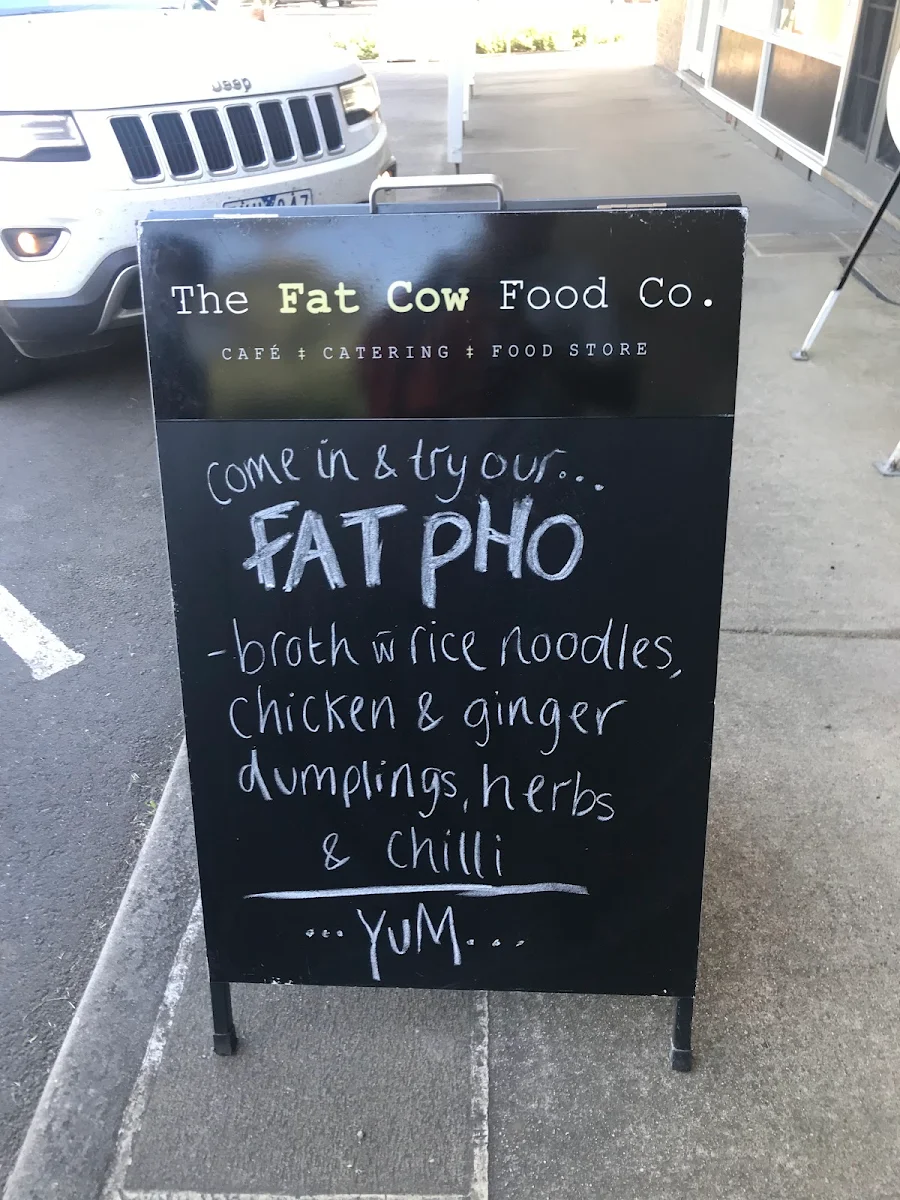 Jeep
The Fat Cow Food Co.
CAFÉ ‡ CATERING ‡ FOOD STORE
come in & try our...
FAT PHO
-broth w̄ rice noodles,
chicken & ginger
dumplings, herbs
& chilli
... YUM....